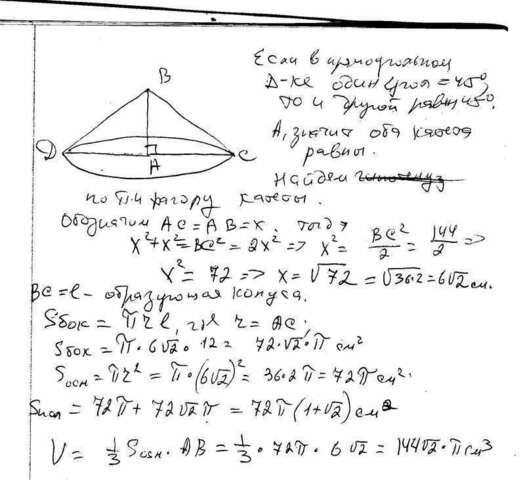 B
Если в прямоугольном
Δ-ке один угол = 45°,
то и другой равен 45°.
D
A
C
А, значит оба катета
равны.
Найдем
по т. Пифагору катеты.
Обозначим AC = AB = x. тогда
x² + x² = BC² = 2x² => x² = BC²/2 = 144/2 =>
x² = 72 => x = √72 = √36·2 = 6√2 см.
BC = l - образующая конуса.
Sбок = π r l, где r = AC;
Sбок = π · 6√2 · 12 = 72·√2·π см²
Sосн = π r² = π·(6√2)² = 36·2π = 72π см².
Sпол = 72π + 72√2π = 72π(1+√2) см²
V = 1/3 Sосн · AB = 1/3 · 72π · 6√2 = 144√2·π см³